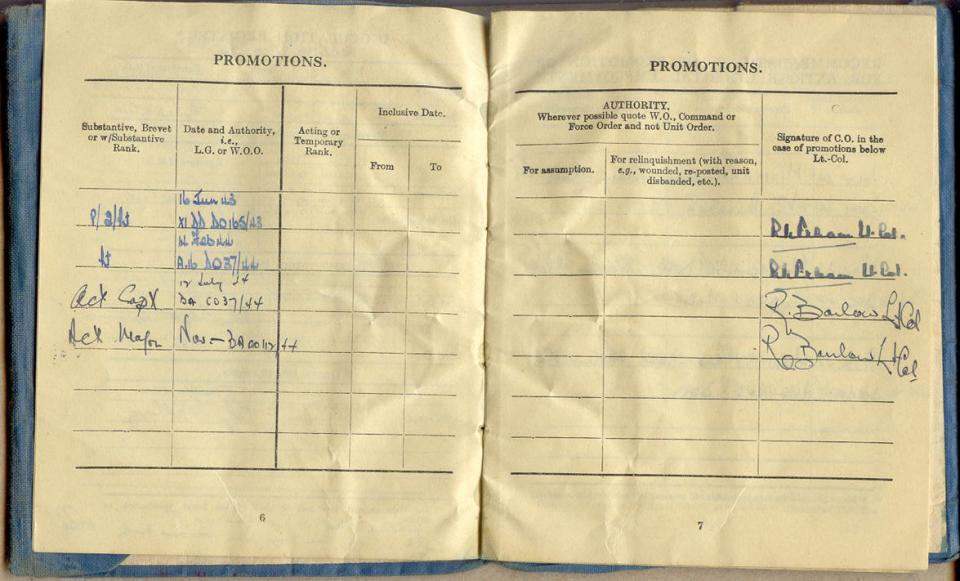 PROMOTIONS.
Substantive, Brevet
or w/Substantive
Rank.
Date and Authority,
i.e.,
L.G. or W.O.O.
Acting or
Temporary
Rank.
Inclusive Date.
From
To
16 Jun 43
P/2/Lt
XI DD DO165/43
14 Feb 44
Lt
DO37/44
12 July 44
Act Capt
DA CO37/44
Act Major
Nov - DA 00112/44
6
PROMOTIONS.
AUTHORITY.
Wherever possible quote W.O., Command or
Force Order and not Unit Order.
For assumption.
For relinquishment (with reason,
e.g., wounded, re-posted, unit
disbanded, etc.).
Signature of C.O. in the
case of promotions below
Lt.-Col.
Lt. Col.
Lt. Col.
R. Barlow Lt Col
R. Barlow Lt Col
7